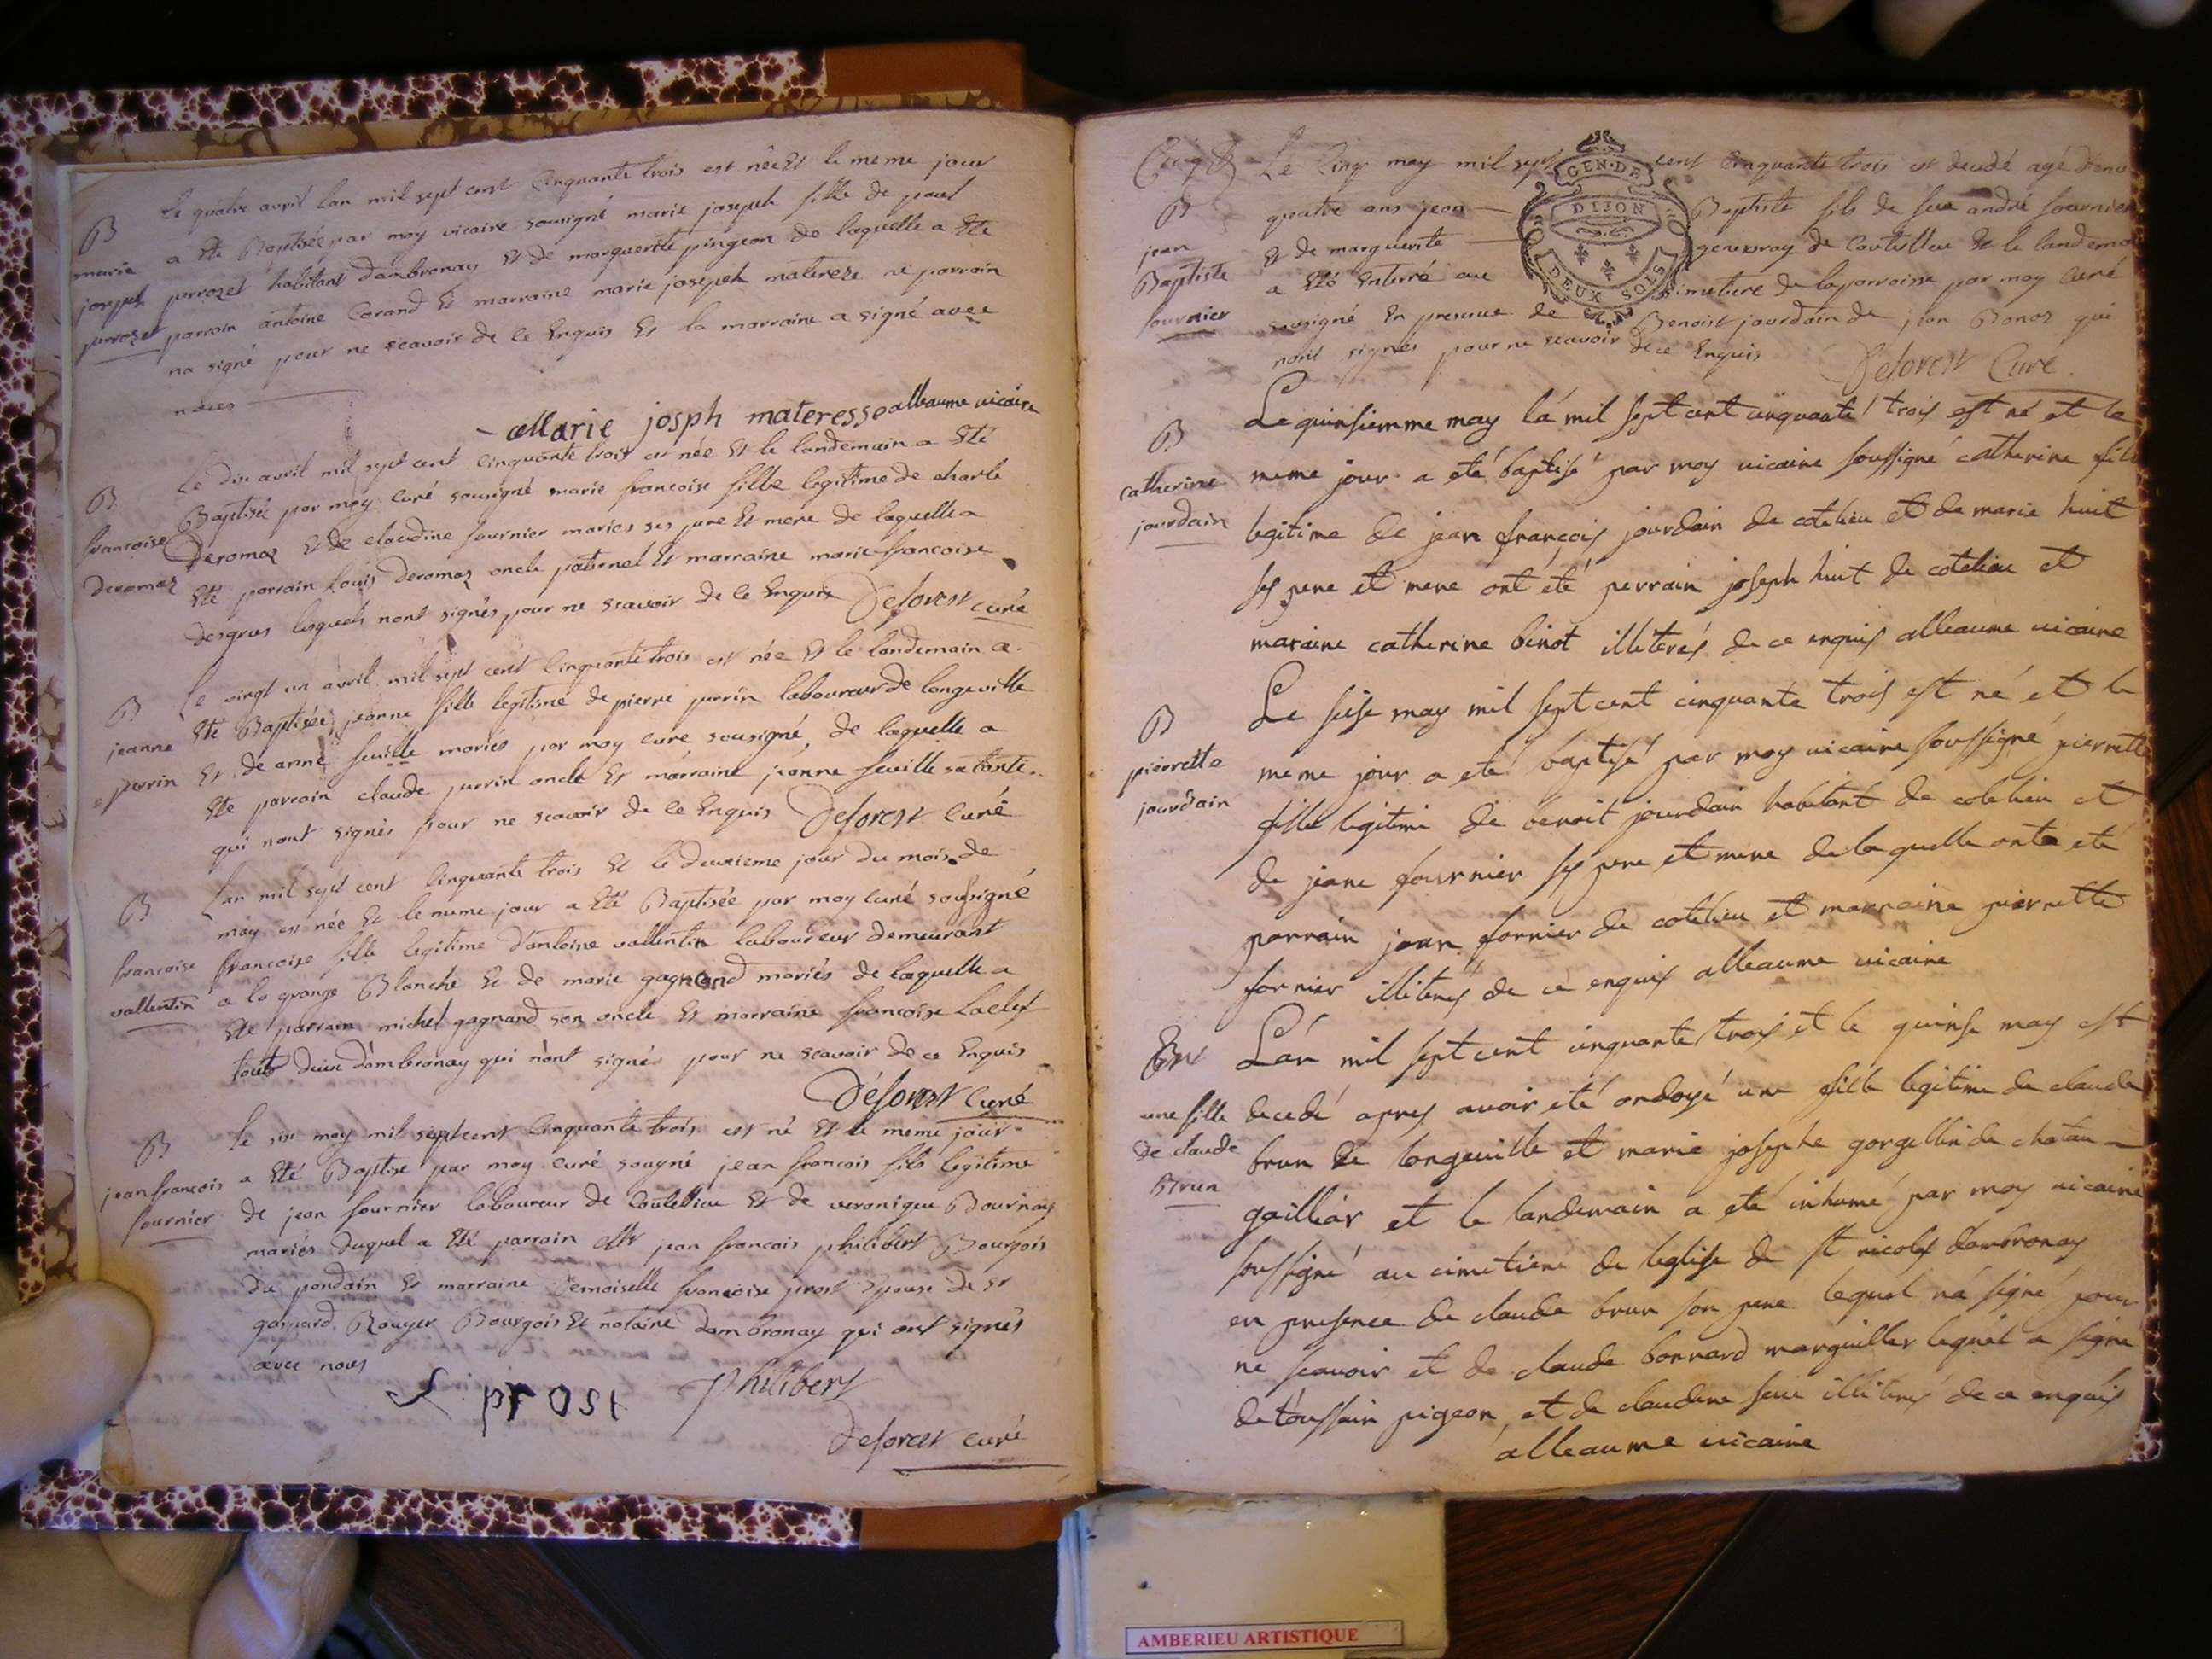 Le quatre avril lan mil sept cent Cinquante trois est née Et le meme jour
B
marie
joseph
perrozet
a été Baptisée par moy vicaire sousigné marie joseph fille de paul
perrozet habitant dambronay Et de marguerite pingeon de laquelle a Eté
parrain antoine Corand Et marraine marie joseph matereze ne parrain
na signé pour ne scavoir de ce Enquis Et la marraine a signé avec
nous
Marie josph materesse alleaume vicaire
Le dix avril mil sept cent cinquante trois est née Et le landemain a Eté
B
francoise
deromaz
Baptisée par moy curé sousigné marie francoise fille legitime de charle
Deromaz Et de claudine fournier mariés ses pere Et mere de laquelle a
Eté parrain louis deromaz oncle paternel Et marraine marie francoise
desgrus lesquels nont signés pour ne scavoir de ce Enquis Deforest curé
Le vingt un avril mil sept cent Cinquante trois est née Et le landemain a
B
jeanne
perrin
Eté Baptisée jeanne fille legitime de pierre perrin laboureur de longeville
Et de anne feuille mariés par moy curé sousigné, de laquelle a
Ete parrain claude perrin oncle Et marraine jeanne feuille sa tante
qui nont signés pour ne scavoir de ce Enquis Deforest Curé
Lan mil sept cent Cinquante trois Et le deuxieme jour du mois de
B
francoise
vallentin
may est née Et le meme jour a Eté Baptisée par moy curé sousigné
francoise fille legitime dantoine vallentin laboureur demeurant
a la grange Blanche Et de marie gagnand mariés de laquelle a
Ete parrain michel gagnand son oncle Et marraine francoise laclef
tout deux dambronay qui nont signé pour ne scavoir de ce Enquis
Déforest Curé
Le six may mil sept cent Cinquante trois est né Et le meme jour
B
jean francois
fournier
a Eté Baptise par moy curé sougné jean francois fils legitime
de jean fournier laboureur de Coutellieu Et de veronique Bournay
mariés duquel a Eté parrain jean francois philibert Bourgois
du pondain Et marraine Demoiselle francoise prost Epouse de sr
gaspard Rouyer Bourgois Et notaire dambronay qui ont signés
avec nous
prost philibert
Deforest curé
GEN. DE
DIJON
DEUX SOLS
Le Cinq may mil sept cent Cinquante trois est decedé agé denv
jean
Baptiste
fournier
quatre ans jean Baptiste fils de feu andré fournier
Et de marguerite genevray de Coutellieu Et le landema
a Eté Enterré au Simetiere de la parroisse par moy Curé
sousigné En presence de Benoist jourdain de jean Bonaz qui
nont signés pour ne scavoir de ce Enquis Deforest Curé
Le quinsiemme may la mil sept cent cinquante trois est né et le
B
catherine
jourdain
meme jour a eté baptisé par moy vicaire soussigné catherine fille
legitime de jean françois jourdain de cotelieu et de marie huit
ses pere et mere ont eté perrain joseph huit de cotelieu et
maraine catherine binot illiterés de ce enquis alleaume vicaire
Le seise may mil sept cent cinquante trois est né et le
B
pierrette
jourdain
meme jour a eté baptisé par moy vicaire soussigné pierrette
fille legitime de benoit jourdain habitant de cotelieu et
de jeane fournier ses pere et mere de la quelle onta eté
parrain jean fornier de cotelieu et marraine pierrette
fornier illiterés de ce enquis alleaume vicaire
L'an mil sept cent cinquante trois et le quinse may est
une fille
de claude
Brun
decedé apres avoir eté ondoyé une fille legitime de claude
brun de longeville et marie josephe gorgellin de chatau
gaillar, et le landemain a eté inhumé par moy vicaire
soussigné au cimetiere de leglise de st nicolas dambronay
en presence de claude brun son pere lequel n'a signé pour
ne scavoir et de claude bonnard marguiller lequel a signe
de toussain pigeon, et de claudine illiterés de ce enquis
alleaume vicaire
AMBERIEU ARTISTIQUE